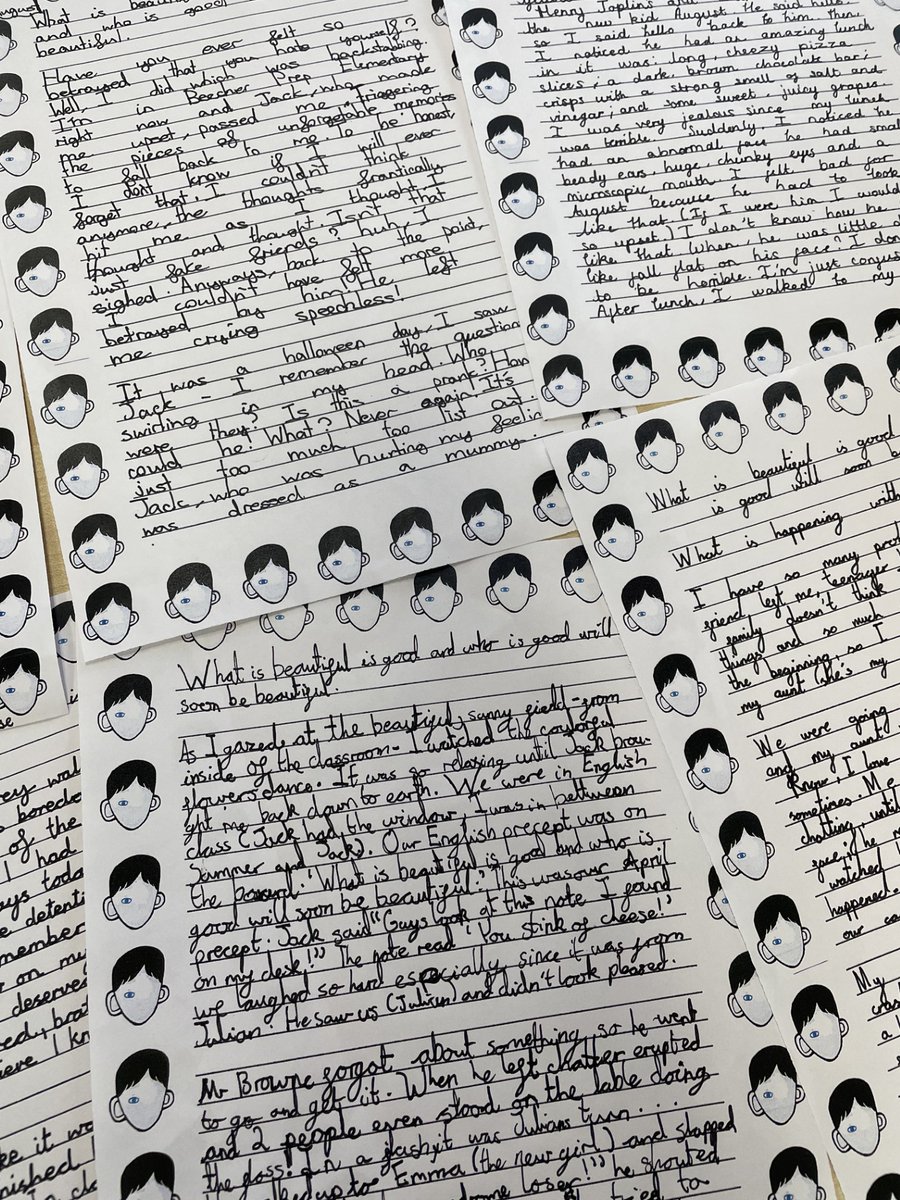 august
What is beau
and who is good
beautiful.
Have you ever felt so
betrayed that you hate yourself?
Well, I did which was backstabbing.
I'm in Beecher Prep Elementary
right now and Jack, who made
me upset, passed me. Triggering
the pieces of unforgetable memories
to fall back to me to be honest,
I don't know if I will ever
forget that, I couldn't think
anymore, the thoughts frantically
hit me as I thought,
thought and thought. Isn't that
just fake friends? huh, I
sighed. Anyways, back to the point,
I couldn't have felt more
betrayed by him. He left
me crying speechless!
It was a halloween day, I saw
Jack - I remember the question
swirling in my head. Who
were they? Is this a prank? How
could he! What? Never again. It's
just too much too list out.
Jack, who was hurting my feelin
was dressed as a mummy.
Henry Joplins
the new kid, August. He said hello
so I said hello back to him. Then
I noticed he had an amazing lunch
in it was: long, cheezy pizza
slices; a dark, brown chocolate bar;
crisps with a strong smell of salt and
vinegar; and some sweet, juicy grapes.
I was very jealous since my lunch
was terrible. Suddenly, I noticed he
had an abnormal face he had small
beady ears, huge chunky eyes and a
microscopic mouth I felt bad for
August because he had to look
like that (If I were him I would
so upset.) I don't know how he
like that (when he was little d
like fall flat on his face? I don
to be horrible. I'm just confus
After lunch, I walked to my
What is beautiful is good
is good will soon b
What is happening with
I have so many prob
friend left me, teenager
family doesn't think
things and so much
the beginning, so I
my aunt (she's my
We were going
and my aunt
Knew, I love
sometimes. Me
chatting, until
face, he m
watched
happened.
our ca
My
cras
a l
What is beautiful is good and who is good will
soon be beautiful.
As I gazed at the beautiful, sunny field-from
inside of the classroom- I watched the colourful
flowers dance. It was so relaxing until Jack brou-
ght me back down to earth. We were in English
class (Jack had the window, I was in between
Summer and Jack). Our English precept was on
the board. 'What is beautiful is good and who is
good will soon be beautiful?' This was our April
precept. Jack said "Guys look at this note I found
on my desk!" The note read 'You stink of cheese!'
we laughed so hard especially since it was from
Julian. He saw us (Julian) and didn't look pleased.
Mr Browne forgot about something, so he went
to go and get it. When he left chatter erupted
and 2 people even stood on the table doing
the floss! In a flash it was Julians turn...
up to Emma (the new girl) and slapped
loser!" he shouted
tried to
se
rey wal
s boredo
of the
I had
ays toda
e detenti
member
r on my
deserve
eve I kn
ke it wo
nished